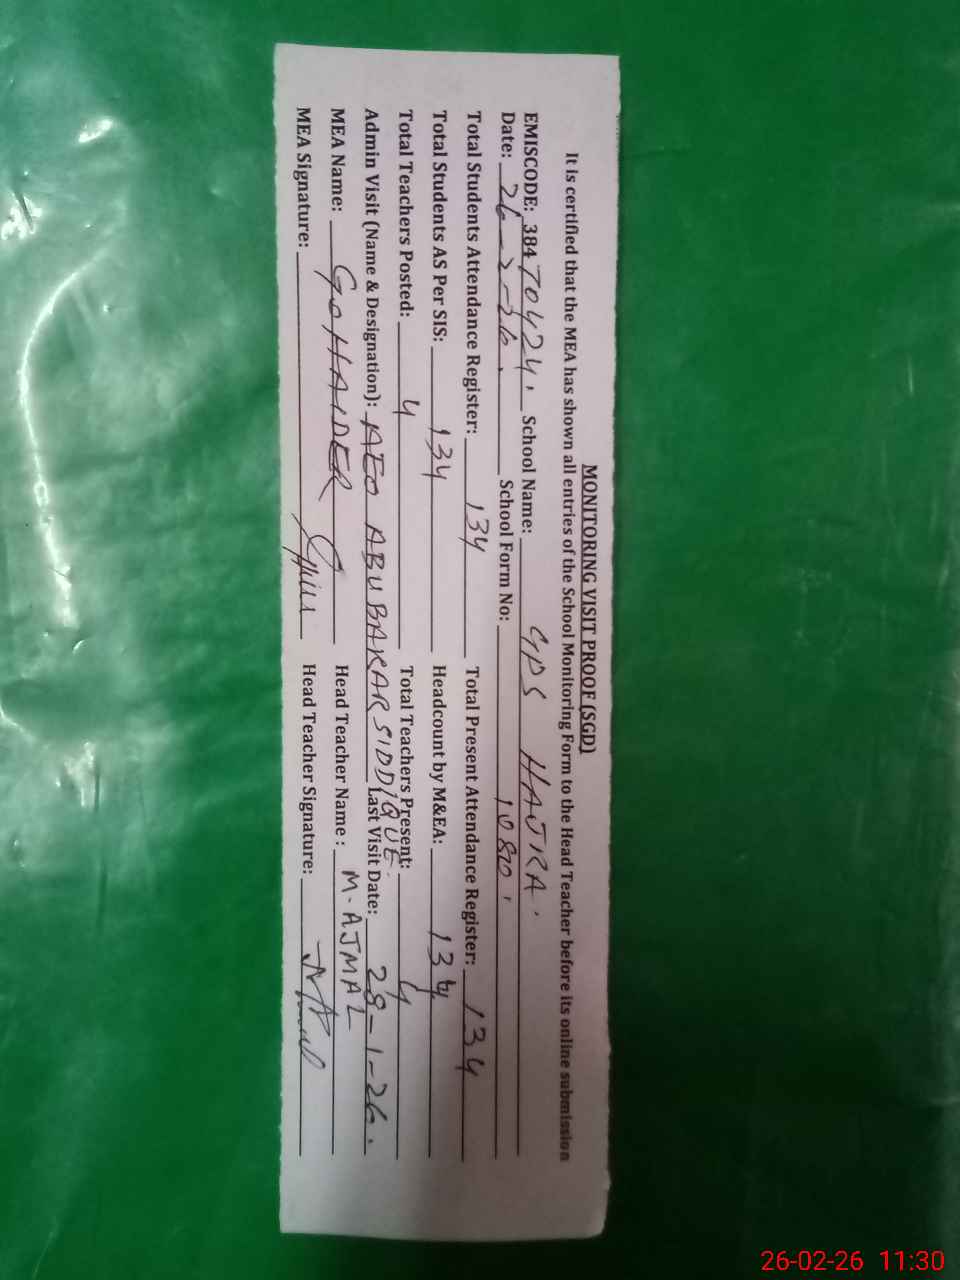 MONITORING VISIT PROOF (SGD)
It Is certified that the MEA has shown all entries of the School Monitoring Form to the Head Teacher before its online submission
EMISCODE: 38470424. School Name: GPS HAJRA.
Date: 26-2-26. School Form No: 1080.
Total Students Attendance Register: 134 Total Present Attendance Register: 134
Total Students AS Per SIS: 134 Headcount by M&EA: 134
Total Teachers Posted: 4 Total Teachers Present: 4
Admin Visit (Name & Designation): AEO ABUBAKAR SIDDIQUE. Last Visit Date: 28-1-26.
MEA Name: HAIDER Head Teacher Name: M. AJMAL
MEA Signature: Head Teacher Signature:
26-02-26 11:30